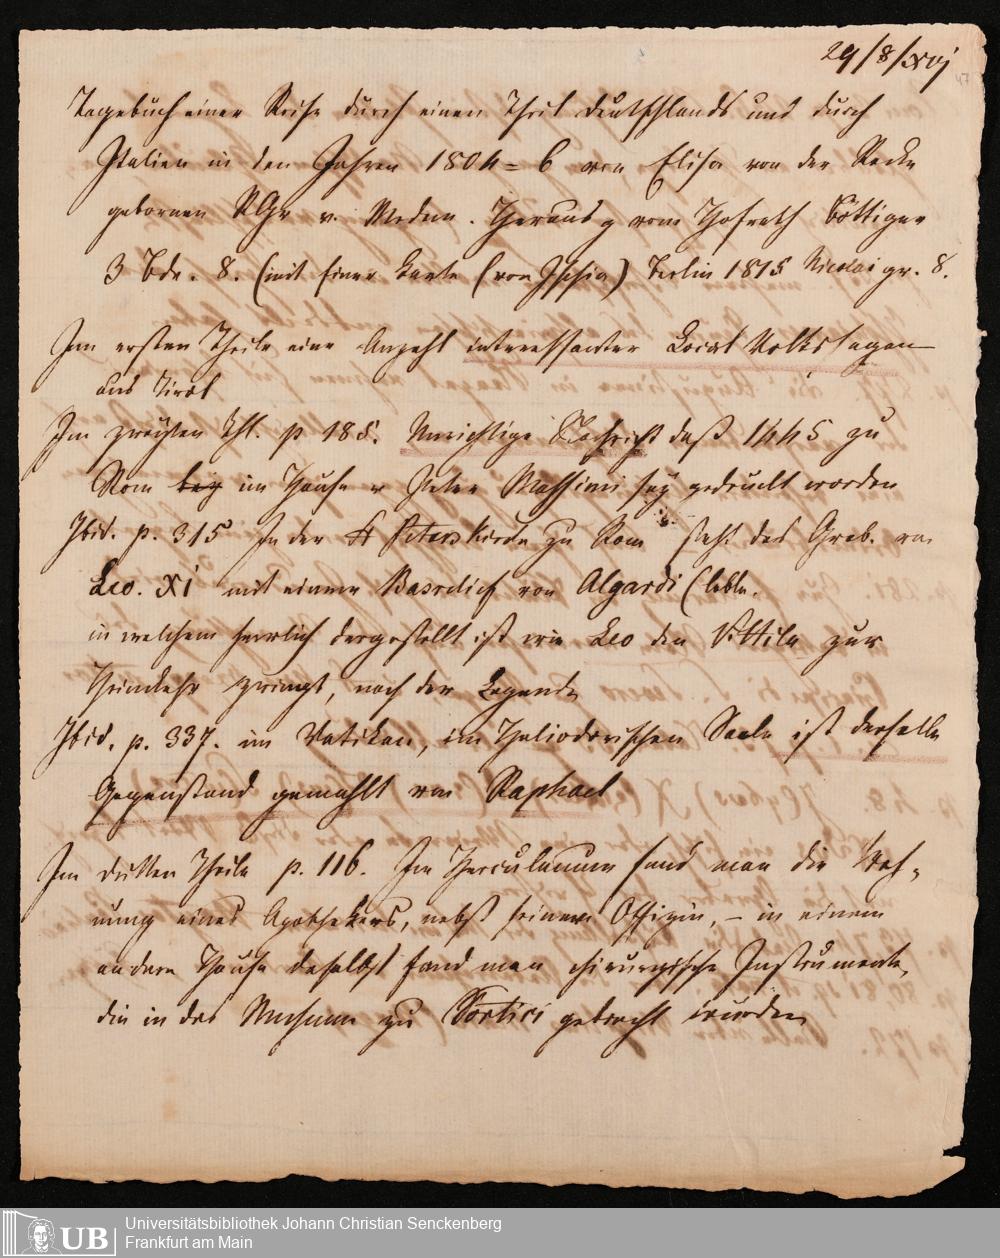 29/8/xvj
47
Tagebuch einer Reise durch einen Theil Deutschlands und durch
Italien in den Jahren 1804 = 6 von Elisa von der Recke
gebornen v. Medem. Herausg vom Hofrath Böttiger
3 Bde. 8. (mit einer Karte (von Ischia) Berlin 1815 Nicolai gr. 8.
Im ersten Theile eine Anzahl interessanter Local Volkssagen
aus Tirol
Im zweyten Thl. p 185. Unrichtige Nachricht daß 1445 zu
Rom bey im Hause Peter Massimi sey gedruckt worden
Ibid. p. 315 In der St Peterskirche zu Rom steht das Grab. von
Leo. XI mit einem Basrelief von Algardi
in welchem herrlich dargestellt ist wie Leo den Attila zur
Heimkehr zwingt, nach der Legende
Ibid. p. 337. im Vatikan, im Heliodorischen Saale ist derselbe
Gegenstand gemahlt von Raphael
Im dritten Theile p. 116. Im Herculanum fand man die Woh-
nung eines Apothekers, nebst seiner Offizin, – in einem
andern Hause daselbst fand man chirurgische Instrumente,
die in das Museum zu Portici gebracht wurden
UB
Universitätsbibliothek Johann Christian Senckenberg
Frankfurt am Main